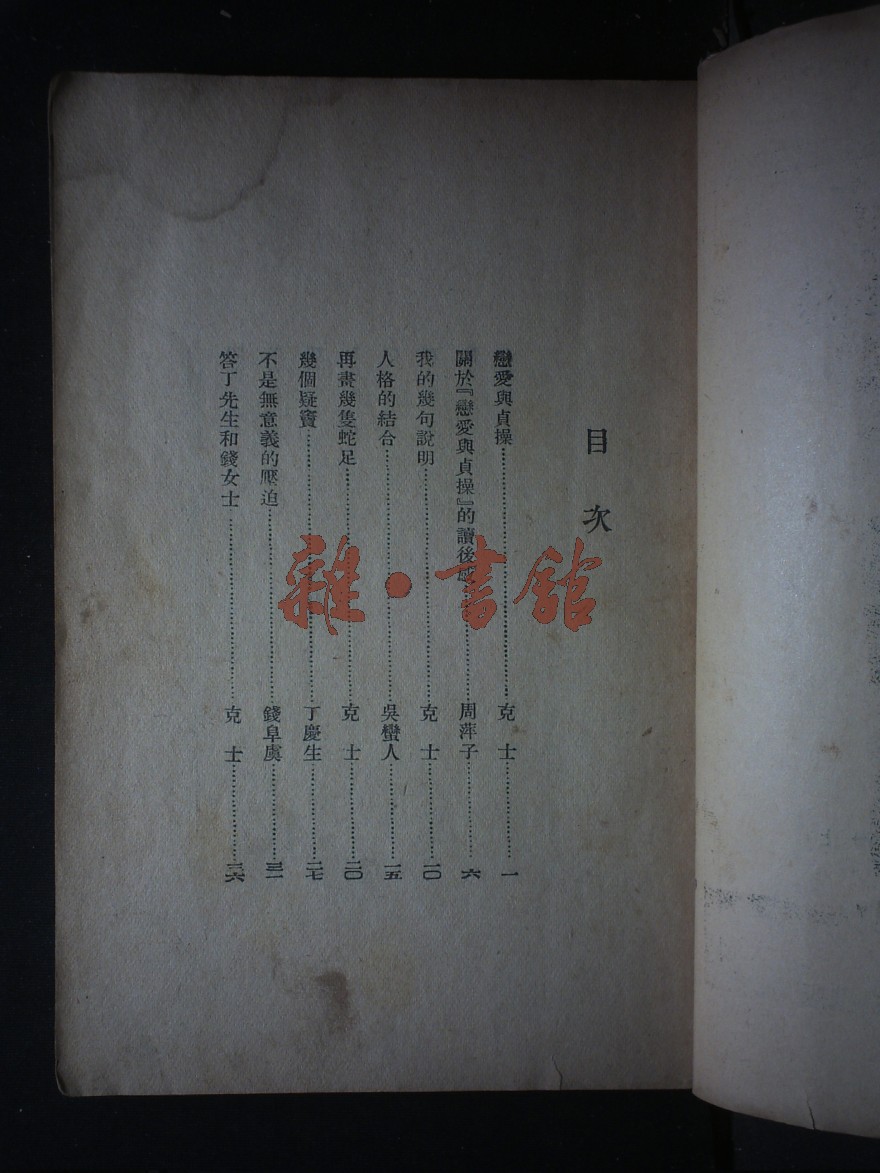 目次
戀愛與貞操…………克士…………一
關於『戀愛與貞操』的讀後感…………周萍子…………六
我的幾句說明…………克士…………一〇
人格的結合…………吳蠻人…………一五
再畫幾隻蛇足…………克士…………二〇
幾個疑竇…………丁慶生…………二七
不是無意義的壓迫…………錢阜虞…………三一
答丁先生和錢女士…………克士…………三六
雜·書館